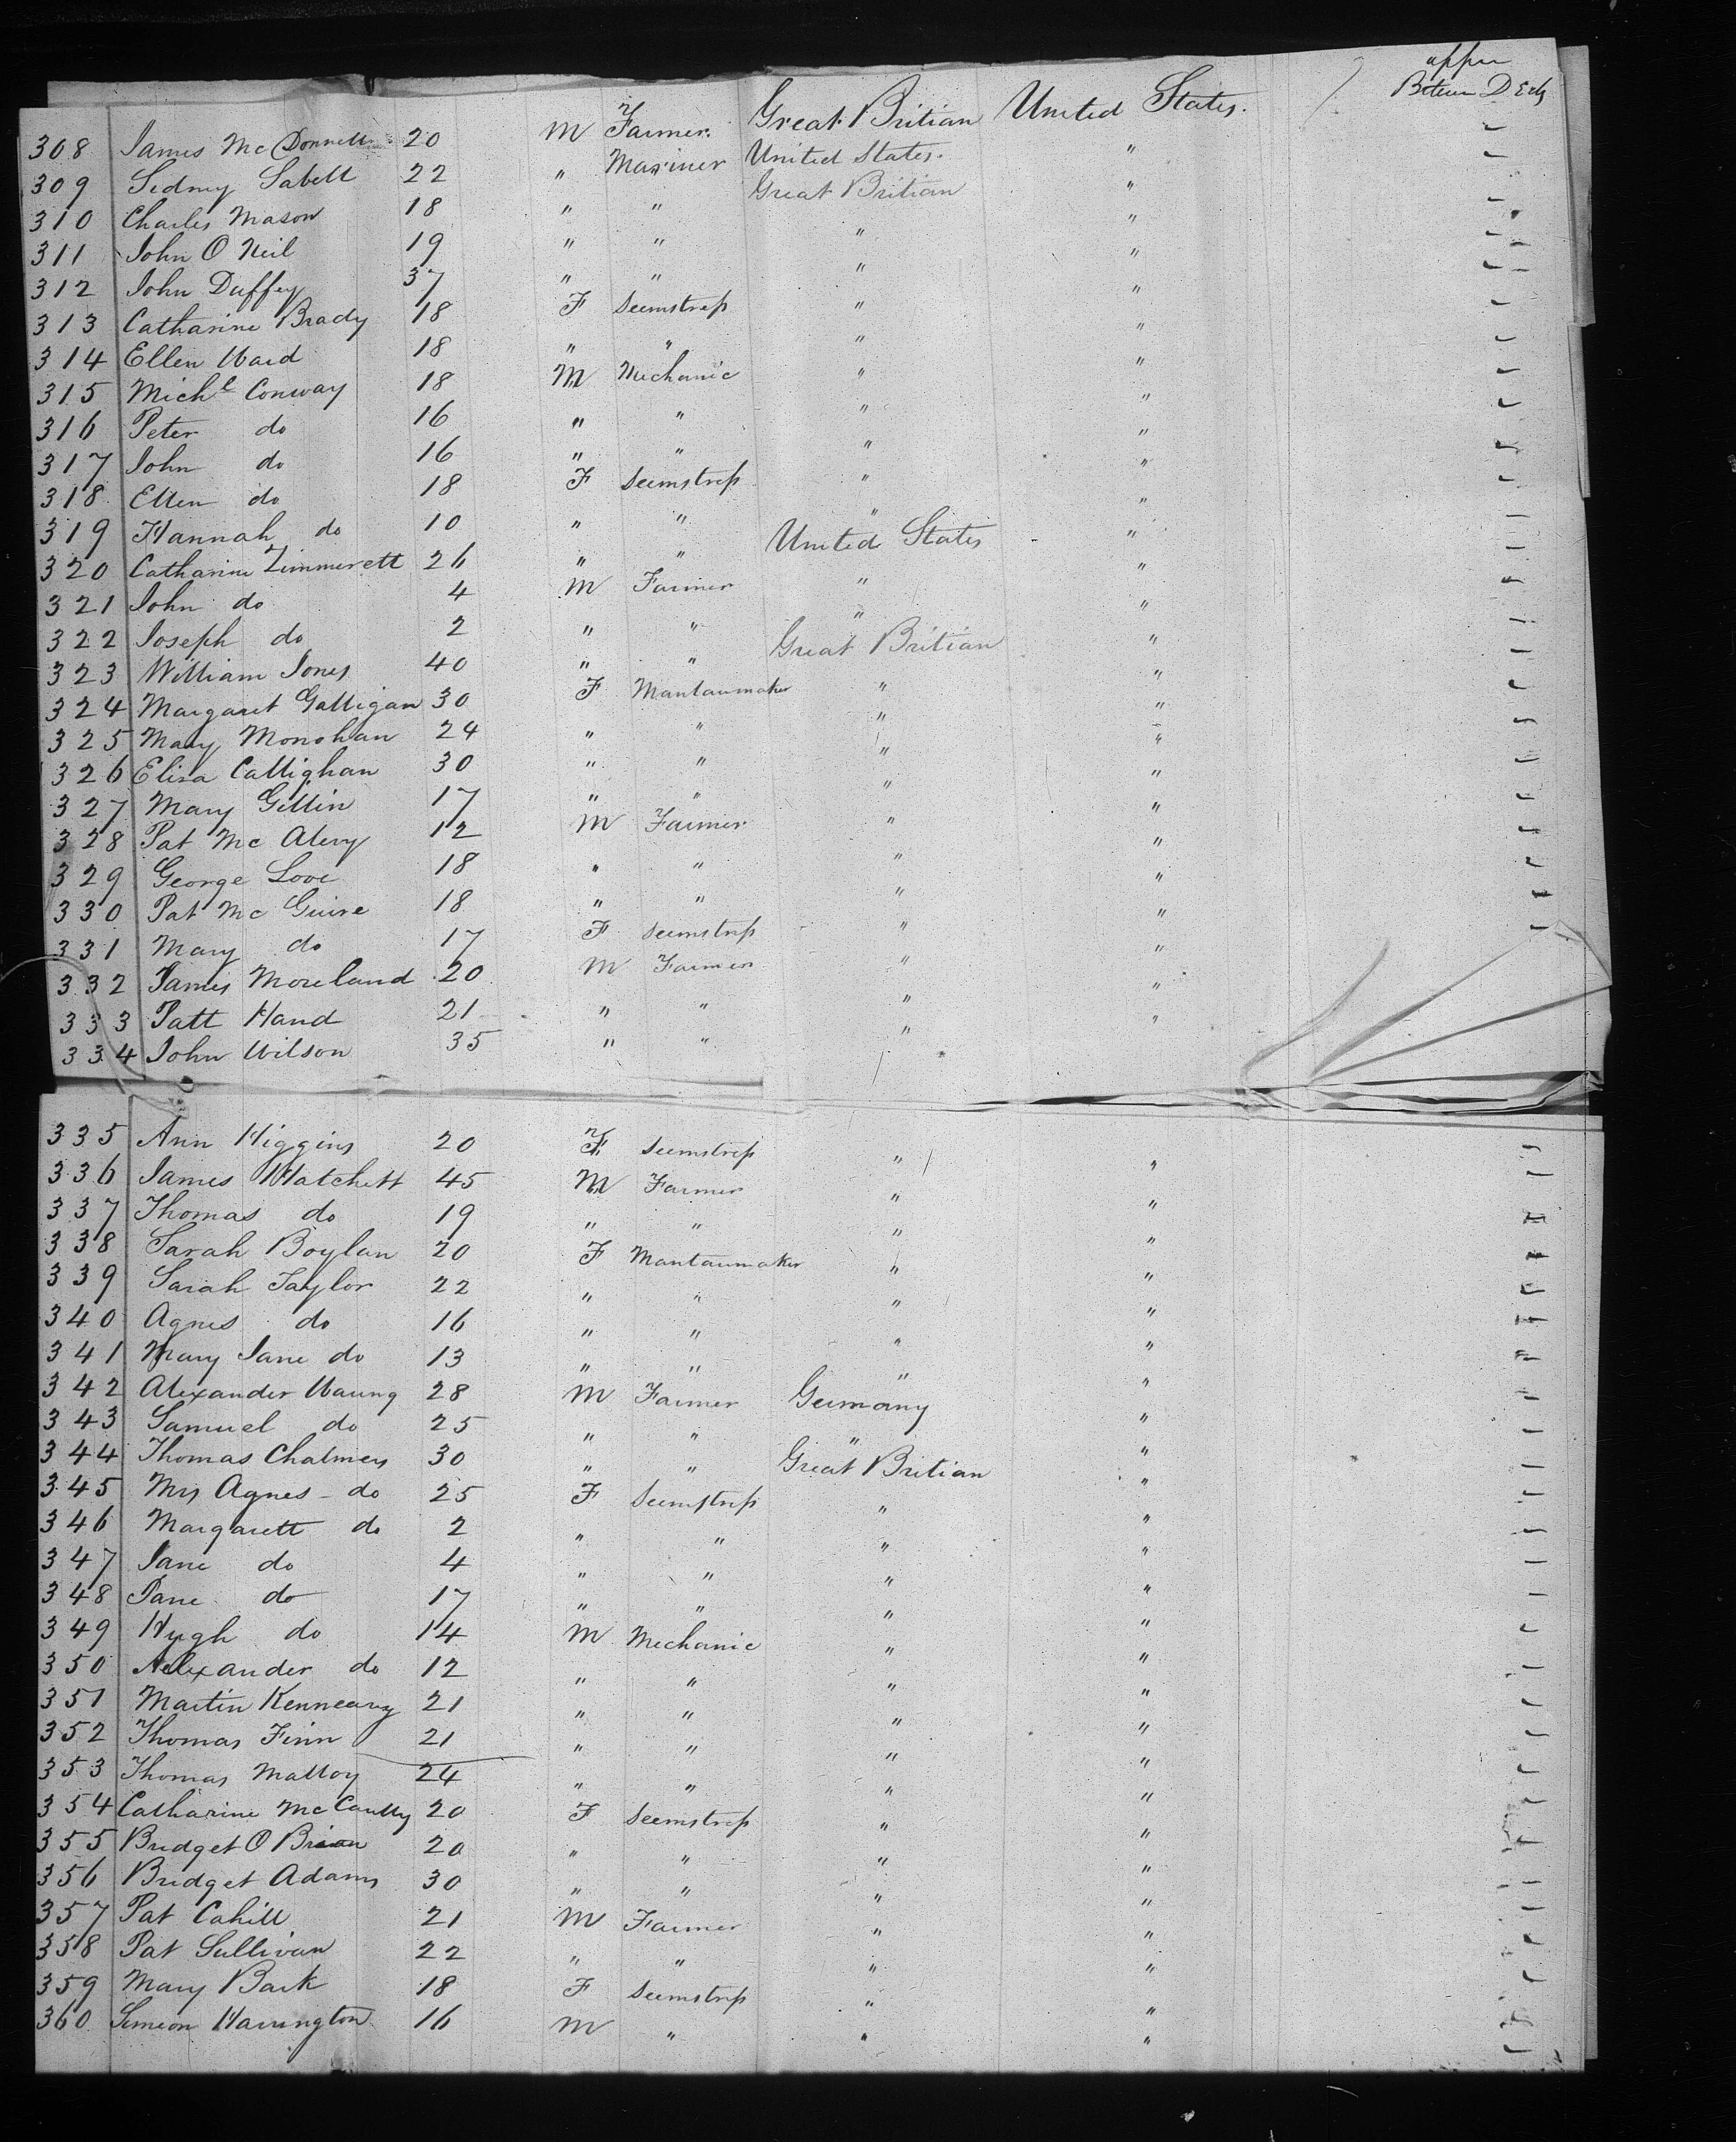 upper
Between Decks
308 James McDonnell 20 M Farmer Great Britian United States.
309 Sidney Sabell 22 " Mariner United States. "
310 Charles Mason 18 " " Great Britian "
311 John O Neil 19 " " " "
312 John Duffey 37 " " " "
313 Catharine Brady 18 F Seemstress " "
314 Ellen Ward 18 " " " "
315 Michl Conway 18 M Mechanic " "
316 Peter do 16 " " " "
317 John do 16 " " " "
318 Ellen do 18 F Seemstress " "
319 Hannah do 10 " " " "
320 Catharine Zimmerett 26 " " United States "
321 John do 4 M Farmer " "
322 Joseph do 2 " " " "
323 William Jones 40 " " Great Britian "
324 Margaret Galligan 30 F Mantaumaker " "
325 Mary Monohan 24 " " " "
326 Eliza Callighan 30 " " " "
327 Mary Gillin 17 " " " "
328 Pat Mc Alery 12 M Farmer " "
329 George Love 18 " " " "
330 Pat Mc Guire 18 " " " "
331 Mary do 17 F Seemstress " "
332 James Moreland 20 M Farmer " "
333 Patt Hand 21 " " " "
334 John Wilson 35 " " " "
335 Ann Higgins 20 F Seemstress " "
336 James Hatchett 45 M Farmer " "
337 Thomas do 19 " " " "
338 Sarah Boylan 20 F Mantaumaker " "
339 Sarah Taylor 22 " " " "
340 Agnes do 16 " " " "
341 Mary Jane do 13 " " " "
342 Alexander Waung 28 M Farmer Germany "
343 Samuel do 25 " " " "
344 Thomas Chalmers 30 " " Great Britian "
345 Mrs Agnes do 25 F Seemstress " "
346 Margarett do 2 " " " "
347 Jane do 4 " " " "
348 Jane do 17 " " " "
349 Hugh do 14 M Mechanic " "
350 Alexander do 12 " " " "
351 Martin Kenneary 21 " " " "
352 Thomas Finn 21 " " " "
353 Thomas Malloy 24 " " " "
354 Catharine McCaully 20 F Seemstress " "
355 Bridget O Brian 20 " " " "
356 Bridget Adams 30 " " " "
357 Pat Cahill 21 M Farmer " "
358 Pat Sullivan 22 " " " "
359 Mary Bark 18 F Seemstress " "
360 Simeon Harrington 16 M " " "